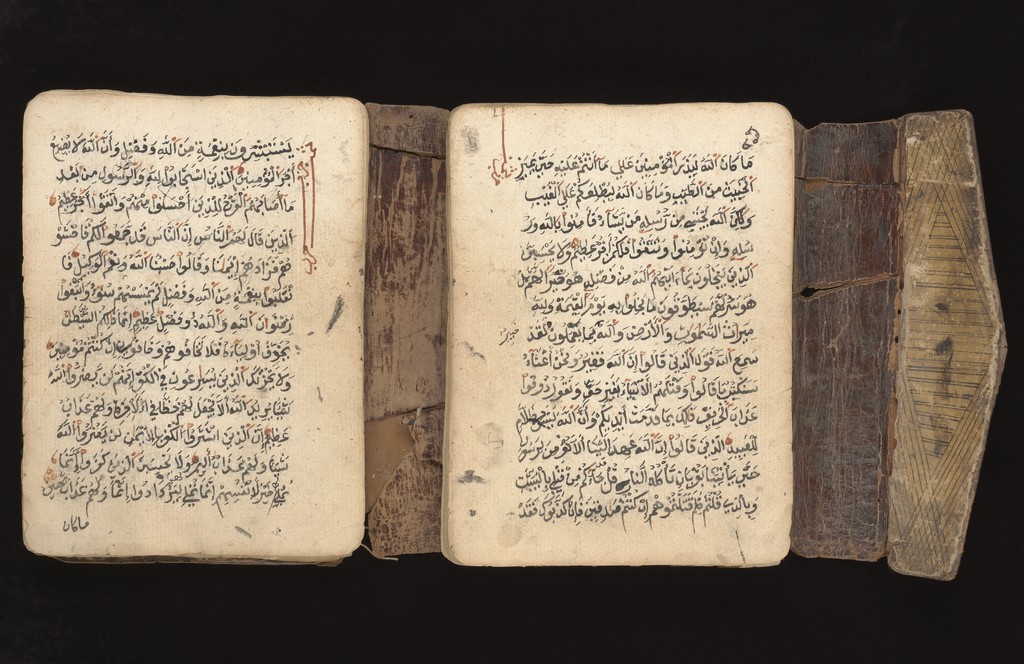 يستبشرون بنعمة من الله وفضل وأن الله لا يضيع
أجر المؤمنين الذين استجابوا لله والرسول من بعد
ما أصابهم القرح للذين أحسنوا منهم واتقوا أجر عظيم
الذين قال لهم الناس إن الناس قد جمعوا لكم فاخشو
هم فزادهم إيمنا وقالوا حسبنا الله ونعم الوكيل فا
نقلبوا بنعمة من الله وفضل لم يمسسهم سوء واتبعوا
رضوان الله والله ذو فضل عظيم إنما ذلكم الشيطن
يخوف أولياءه فلا تخافوهم وخافون إن كنتم مومنين
ولا يحزنك الذين يسرعون في الكفر إنهم لن يضروا الله
شيئا يريد الله ألا يجعل لهم حظا في الآخرة ولهم عذاب
عظيم إن الذين اشتروا الكفر بالإيمن لن يضروا الله
شيئا ولهم عذاب أليم ولا يحسبن الذين كفروا أنما
نملي لهم خير لأنفسهم إنما نملي لهم ليزدادوا إثما ولهم عذاب مهين
ما كان
ما كان الله ليذر المؤمنين على ما أنتم عليه حتى يميز
الخبيث من الطيب وما كان الله ليطلعكم على الغيب
ولكن الله يجتبي من رسله من يشاء فامنوا بالله ور
سله وإن تؤمنوا وتتقوا فلكم أجر عظيم ولا يحسبن
الذين يبخلون بما اتيهم الله من فضله هو خيرا لهم بل
هو شر لهم سيطوقون ما بخلوا به يوم القيمة ولله
ميراث السموت والأرض والله بما يعملون لقد
سمع الله قول الذين قالوا إن الله فقير ونحن أغنياء
سنكتب ما قالوا وقتلهم الأنبياء بغير حق ونقول ذوقوا
عذاب الحريق ذلك بما قدمت أيديكم وأن الله ليس بظلام
للعبيد الذين قالوا إن الله عهد إلينا ألا نؤمن لرسول
حتى يأتينا بقربان تأكله النار قل قد جاءكم من قبلي بالبينت
وبالذي قلتم فلم قتلتموهم إن كنتم صدقين فإن كذبوك فقد